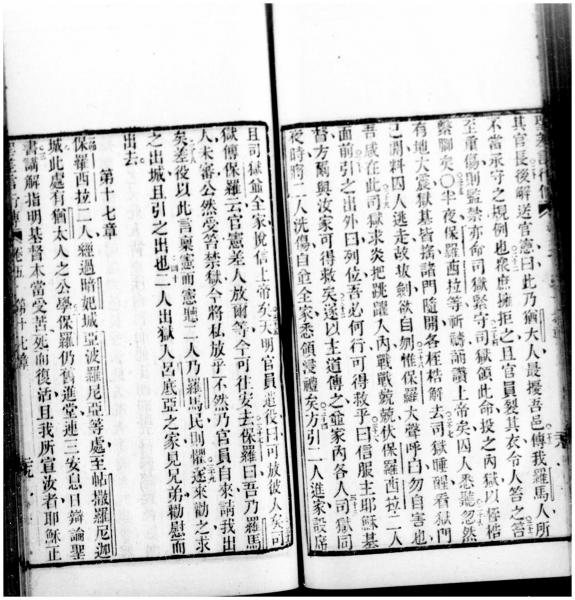 其官長後解送官憲曰此乃猶大人最擾吾邑傳我羅馬人所
不當承守之規例也衆庶擁拒之且官員裂其衣令人笞之笞
至重傷則監禁亦命司獄緊守司獄領此命投之內獄以桎梏
繫腳矣〇半夜保羅西拉等祈禱誦讚上帝矣囚人悉聽忽然
有地大震獄基皆搖諸門隨開各桎梏解去司獄睡醒看獄門
已開料囚人逃走故拔劍欲自刎惟保羅大聲呼曰勿自害也
吾咸在此司獄求炎把跳躍入內戰戰兢兢伏保羅西拉二人
面前引之出外曰列位吾必何行可得救乎曰信服主耶穌基
督方闔與汝家可得救矣遂以主道傳之並家內各人司獄同
夜時將二人洗傷自並全家悉領浸禮矣方引二人進家設席
且司獄並全家悅信上帝矣天明官員遣役曰可放彼人矣可
獄傳保羅云官憲差人放爾等今可往安去保羅曰吾乃羅馬
人未審公然受笞禁獄今將私放乎不然乃官員自來請我出
矣差役以此言稟憲而憲聽二人乃羅馬民則懼遂來勸之求
之出城且引之出也二人出獄入呂底亞之家見兄弟勸慰而
出去
第十七章
保羅西拉二人經過暗妃城亞波羅尼亞等處至帖撒羅尼迦
城此處有猶太人之公學保羅仍舊進堂連三安息日辯論聖
書講解指明基督本當受苦死而復活且我所宣汝者耶穌正